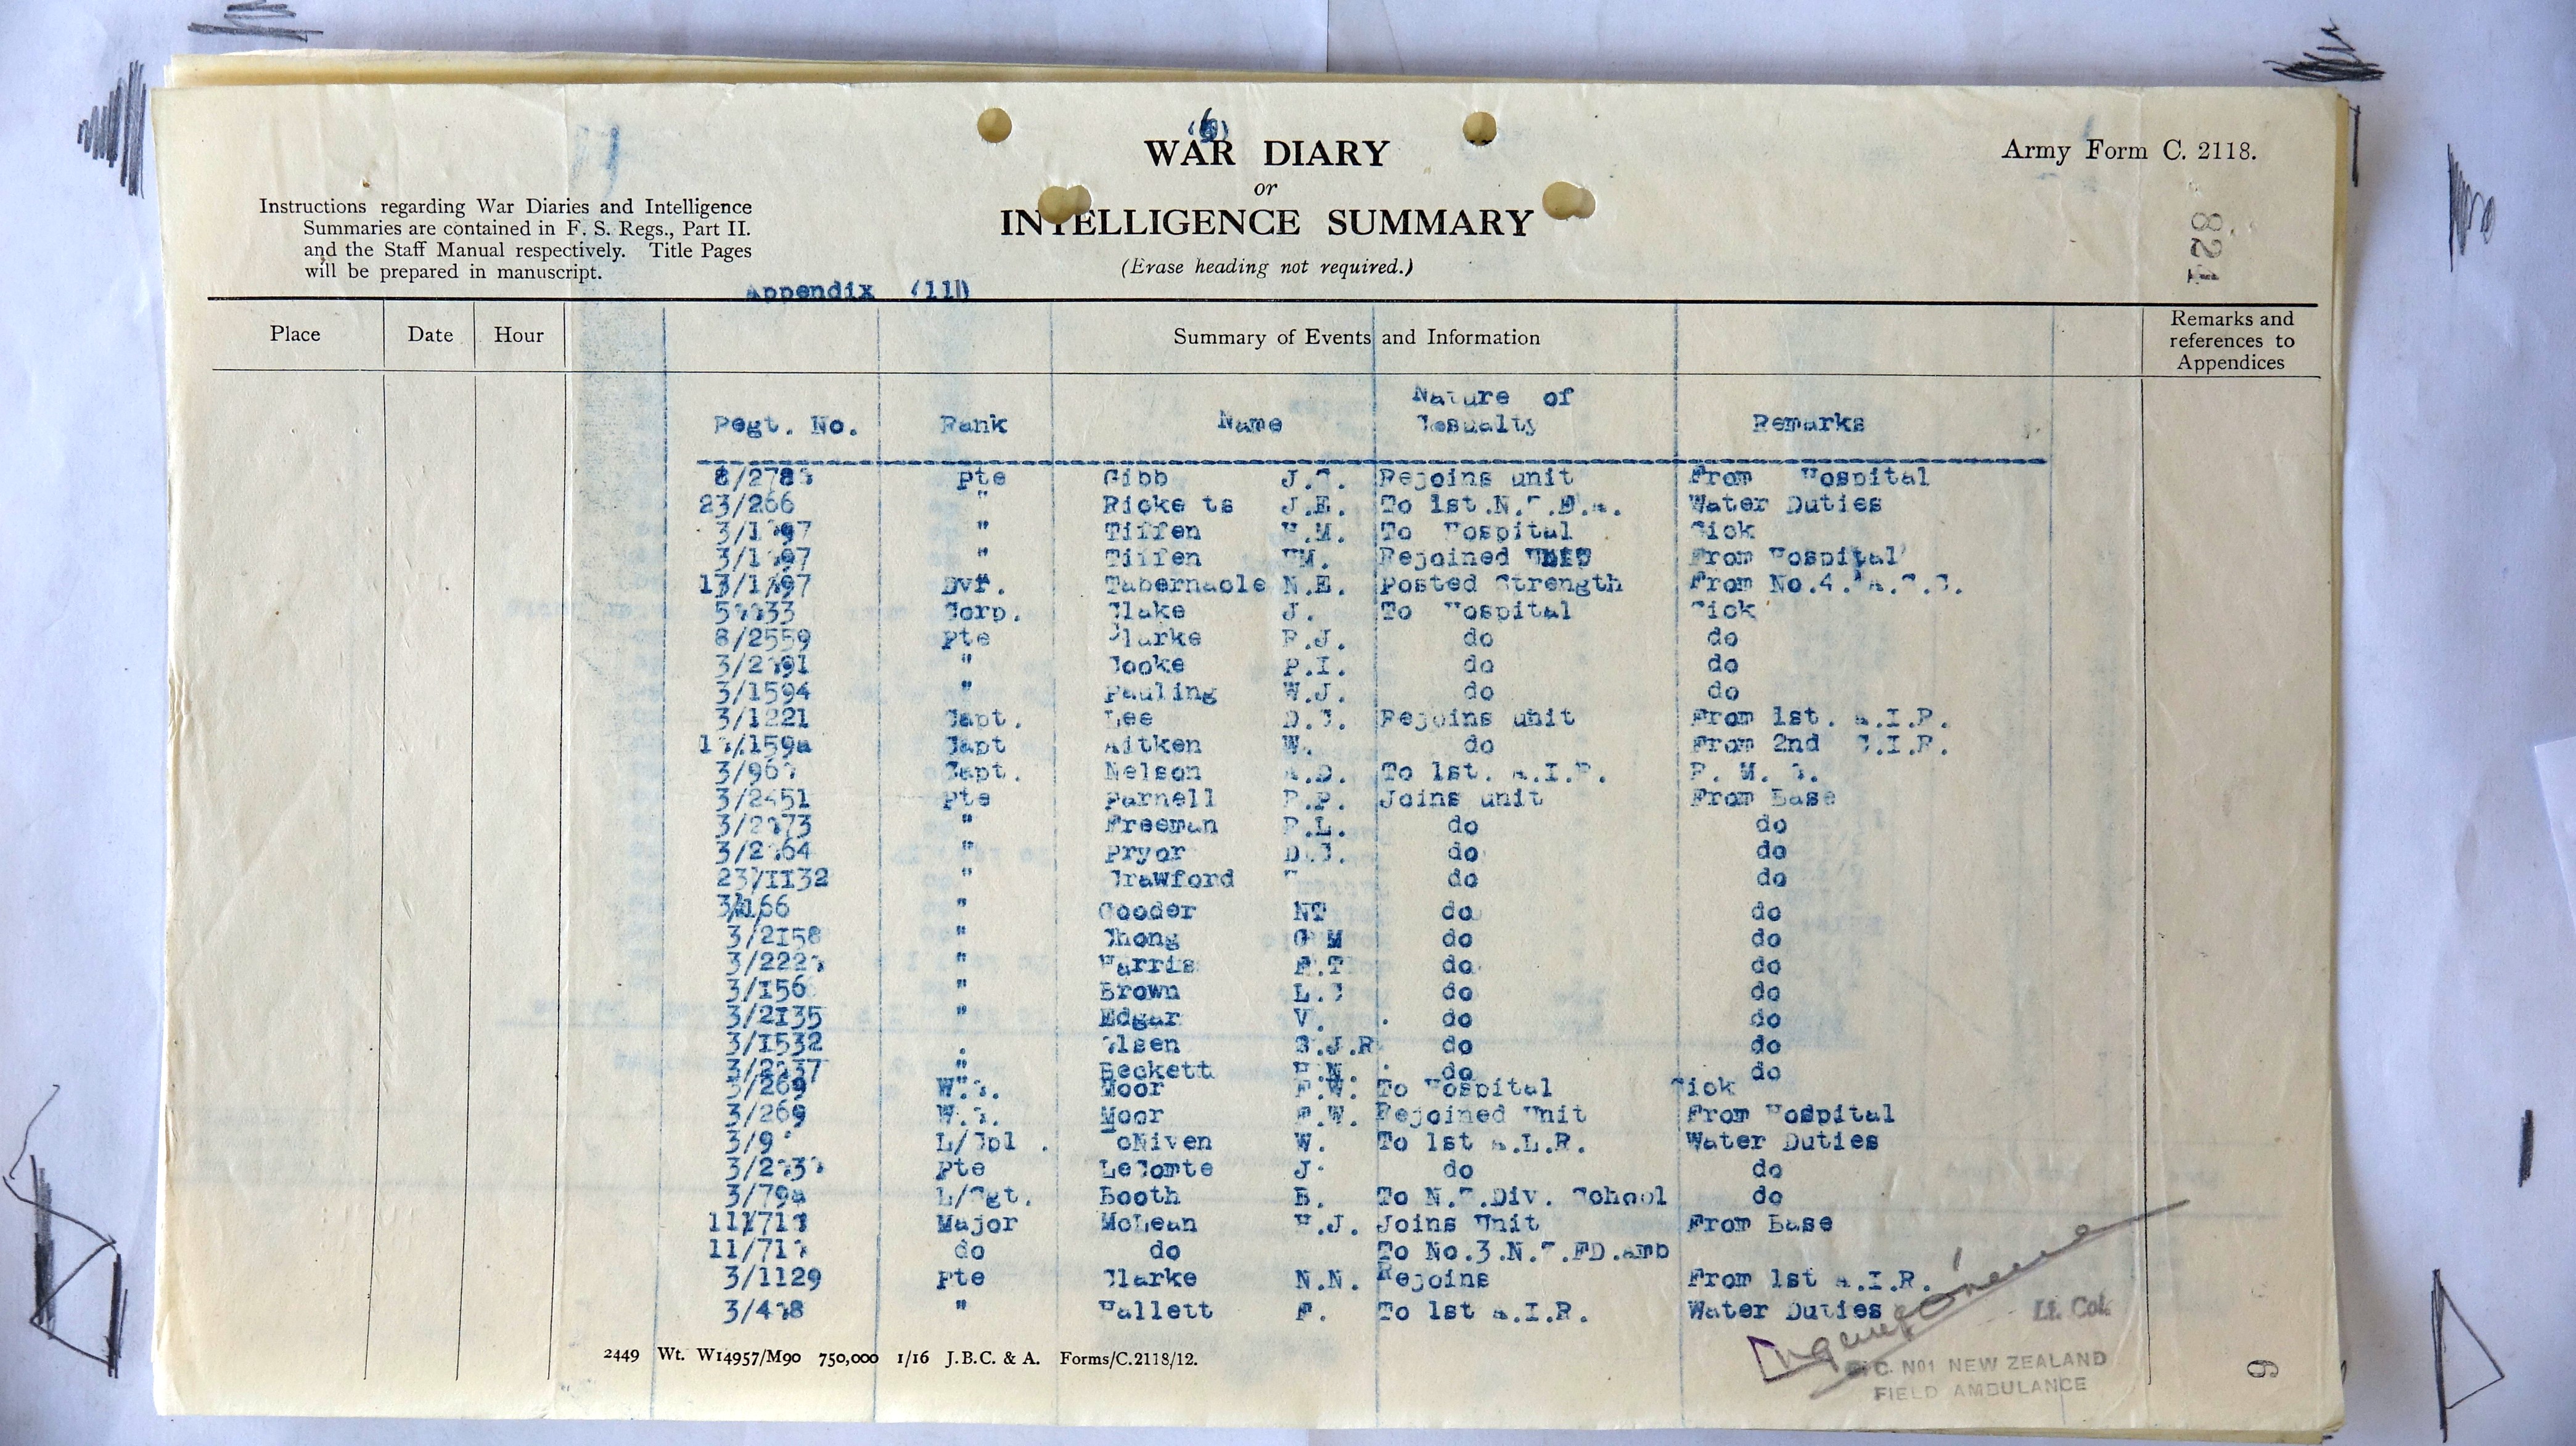 (6)
WAR DIARY
or
INTELLIGENCE SUMMARY
(Erase heading not required.)
Army Form C. 2118.
821
Instructions regarding War Diaries and Intelligence
Summaries are contained in F. S. Regs., Part II.
and the Staff Manual respectively. Title Pages
will be prepared in manuscript.
Appendix (111)
Place Date Hour Summary of Events and Information Remarks and references to Appendices
Regt. No. Rank Name Nature of Casualty Remarks
Pte Gibb Rejoins unit From Hospital
23/266 " Ricketts J.E. To 1st.N.Z.F.A. Water Duties
" Tiffen H.M. To Hospital Sick
" Tiffen HM. Rejoined UNIT From Hospital
Dvr. Tabernacle N.E. Posted Strength From No.4. A.S.C.
Corp. Clake J. To Hospital Sick
8/2559 Pte Clarke do do
" Cooke do do
3/1594 " Pauling W.J. do do
3/1221 Capt. Lee D.C. Rejoins unit From 1st. A.I.R.
Capt Aitken W. do From 2nd C.I.R.
Capt. Nelson A.D. To 1st. A.I.R. R. M. O.
3/2451 Pte Parnell Joins unit From Base
" Freeman do do
" Pryor do do
23/1132 " Crawford do do
" Gooder NT do do
3/2158 " Chong G M do do
" Harris do do
3/156 " Brown L.C do do
3/2135 " Edgar V. do do
3/1532 " Olsen S.J.R do do
" Beckett H.N. do do
3/269 W.O. Moor F.W. To Hospital Sick
3/269 W.O. Moor F.W. Rejoined Unit From Hospital
L/Cpl. McNiven W. To 1st A.L.R. Water Duties
Pte LeComte J. do do
3/79a L/Sgt. Booth B. To N.Z.Div. School do
Major McLean H.J. Joins Unit From Base
do do To No.3.N.Z.FD.Amb
3/1129 Pte Clarke N.N. Rejoins From 1st A.I.R.
" Hallett F. To 1st A.I.R. Water Duties
Lt. Col.
O.C. No1 NEW ZEALAND
FIELD AMBULANCE
2449 Wt. W14957/M90 750,000 1/16 J.B.C. & A. Forms/C.2118/12.
6